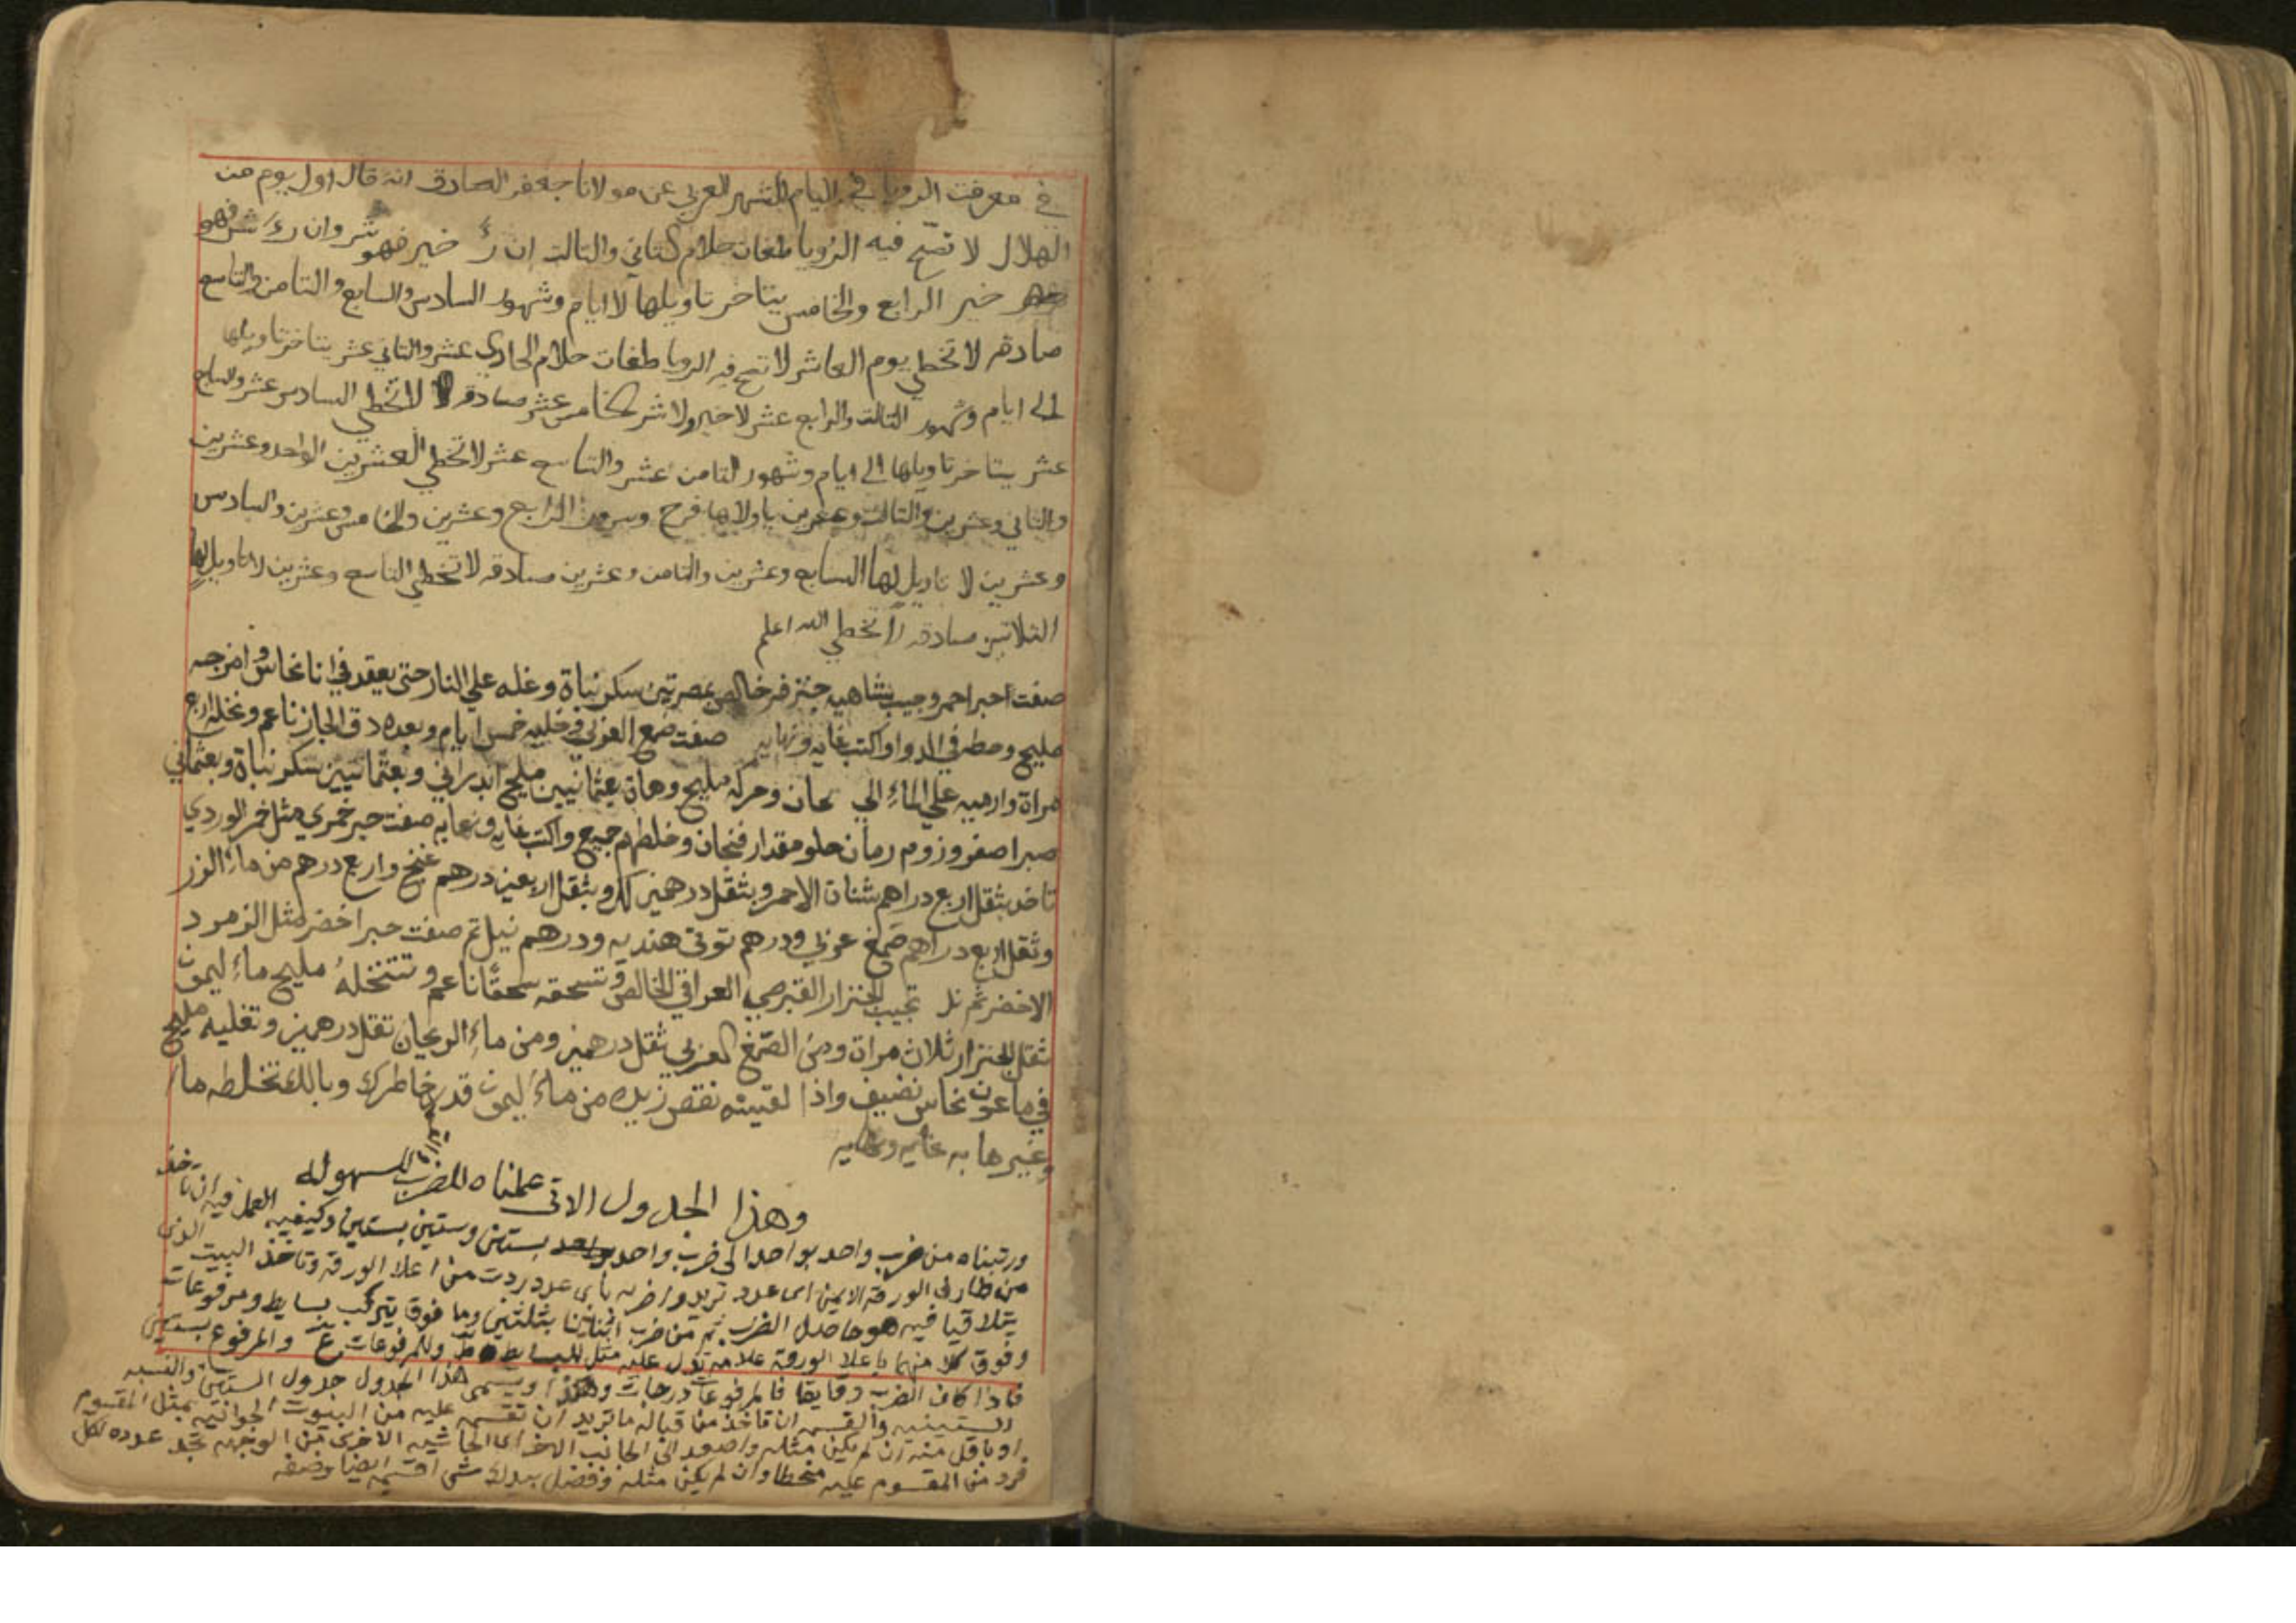 في معرفت الرويا في اليام الشهر العربي عن مولانا جعفر الصادق انه قال اول يوم من
الهلال لا تصح فيه الرويا طغات حلام كتاني والتالت ان رئ خير فهو شر وان رئ شر فهو
خير الرابع والخامس يتاخر تاويلها لا ايام وشهور السادس والسابع والتامن والتاسع
صادقه لا تخطي يوم العاشر لا تصح فيه الرويا طغات حلام الحادي عشر والتاني عشر يتاخر تاويلها
الى ايام وشهور التالت والرابع عشر لا خير ولا شر الخامس عشر صادقه لا تخطي السادس عشر والسابع
عشر يتاخر تاويلها الى ايام وشهور التامن عشر والتاسع عشر لا تخطي العشرين الواحد وعشرين
والتاني وعشرين والتالت وعشرين ياولاها فرح وسرور الرابع وعشرين والخامس وعشرين والسادس
وعشرين لا تاويل لها السابع وعشرين والتامن وعشرين صادقه لا تخطي التاسع وعشرين لا تاويل لها
الثلاتين صادقه لا تخطي الله اعلم
صفت احبر احمر وجيب شاهيه جنزفر خالص بمصرتين سكر نباة وغله علي النار حتى يعقد في انا نحاس وامزجه
مليح وحطه في الدوا واكتب غايه ونهايه صفت ضمع العربي في خليه خمس ايام وبعده دق الجاز ناعم ونخله اربع
مراة وارميه علي الماء الي وحركه مليح وهاة بعثمانيين مليح اندراني وبعثمانيين سكر نباة وبعثماني
صبر اصفر وزوم رمان حلو مقدار فنجان وخلطهم جميع واكتب غايه ونهايه صفت حبر خمري مثل خمر الوردي
تاخد بثقل اربع دراهم شنان الاحمر وبثقل درهمين لك وبثقل اربعين درهم غنج واربع درهم من ماء الزر
وثقل اربع دراهم صمغ عربي ودرهم توتى هنديه ودرهم نيل تم صفت حبر اخضر مثل الزمرد
الاخضر تجيب الجنزار القبرصي العراقي الخالص وتسحقه سحقًا ناعم وتتنخله مليح ماء ليمون
ثقل الجنزار ثلاث مراة ومن الصمغ العربي ثقل درهمين ومن ماء الريحان تقل درهمين وتغليه مليح
في ماعون نحاس نضيف واذا لقيته نقص زيده من ماء ليمون قدر خاطرك وبالك تخلطه ماء
وغيرها به غايه ونهايه
وهذا الجدول الاتى عملناه للضرب للسهوله
ورتبناه من ضرب واحد بواحد الى ضرب واحد بستين وستين بستين وكيفيه العمل فيه ان تاخذ
من طارف الورقه الايمن اى عدد تريد واضربه باى عدد ردت من اعلا الورقة وتاخذ البيت الذى
يتلاقيا فيه هو حاصل الضرب ثم من ضرب بثلثين وما فوق يتركب بسايط ومرفوعات
وفوق كلا منهما باعلا الورقة علامه تدل عليه مثل للبسايط ط وللمرفوعات ع والمرفوع بستين
فاذا كان الضرب دقايقا فالمرفوعات درجات وهكذا ويسمى هذا الجدول جدول الستين والنسبه
الستينيه والقسمه ان تاخذ من قباله ما تريد ان تقسم عليه من البيوت الجوانيه بمثل المقسوم
او باقل منه ان لم يكن مثله واصعد الى الجانب الاخر اى الحاشيه الاخرى من الوجهه تجد عدده لكل
فرد من المقسوم عليه منحطا وان لم يكن مثله وفضل بيدك شى اقسمه ايضا